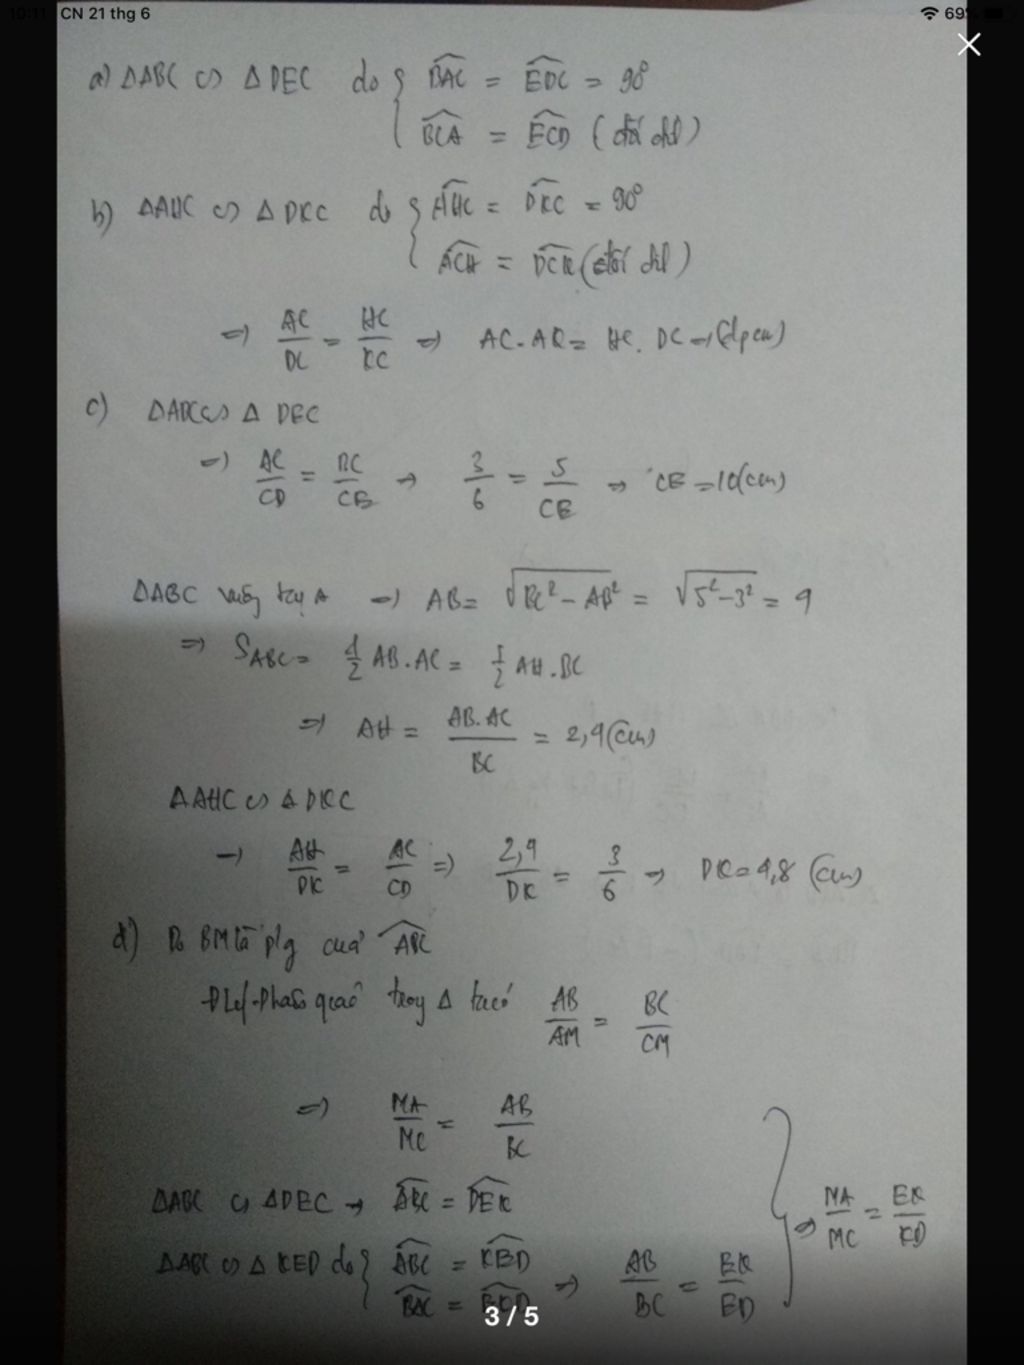 10:11 CN 21 thg 6 69%
a) ΔABC ∽ ΔDEC do { BAC = EDC = 90°
BCA = ECD (đối đỉnh)
b) ΔAHC ∽ ΔDKC do { AHC = DKC = 90°
ACH = DCK (đối đỉnh)
=> AC/DC = HC/KC => AC.AQ = HC.DC => (đpcm)
c) ΔABC ∽ Δ DEC
=> AC/CD = BC/CE => 3/6 = 5/CE => CE = 10(cm)
ΔABC vuông tại A => AB = √BC² - AB² = √5² - 3² = 4
=> SABC = 1/2 AB.AC = 1/2 AH.BC
=> AH = AB.AC/BC = 2,4(cm)
ΔAHC ∽ ΔDKC
=> AH/DK = AC/CD => 2,4/DK = 3/6 => DK = 4,8 (cm)
d) Do BM là p/g của ABC
trong Δ ta có AB/AM = BC/CM
=> MA/MC = AB/BC
ΔABC ∽ ΔDEC => ABC = DEK
ΔABC ∽ Δ KED do { ABC = KED
BAC = EKD => AB/BC = EK/ED } => MA/MC = EK/KD
3 / 5